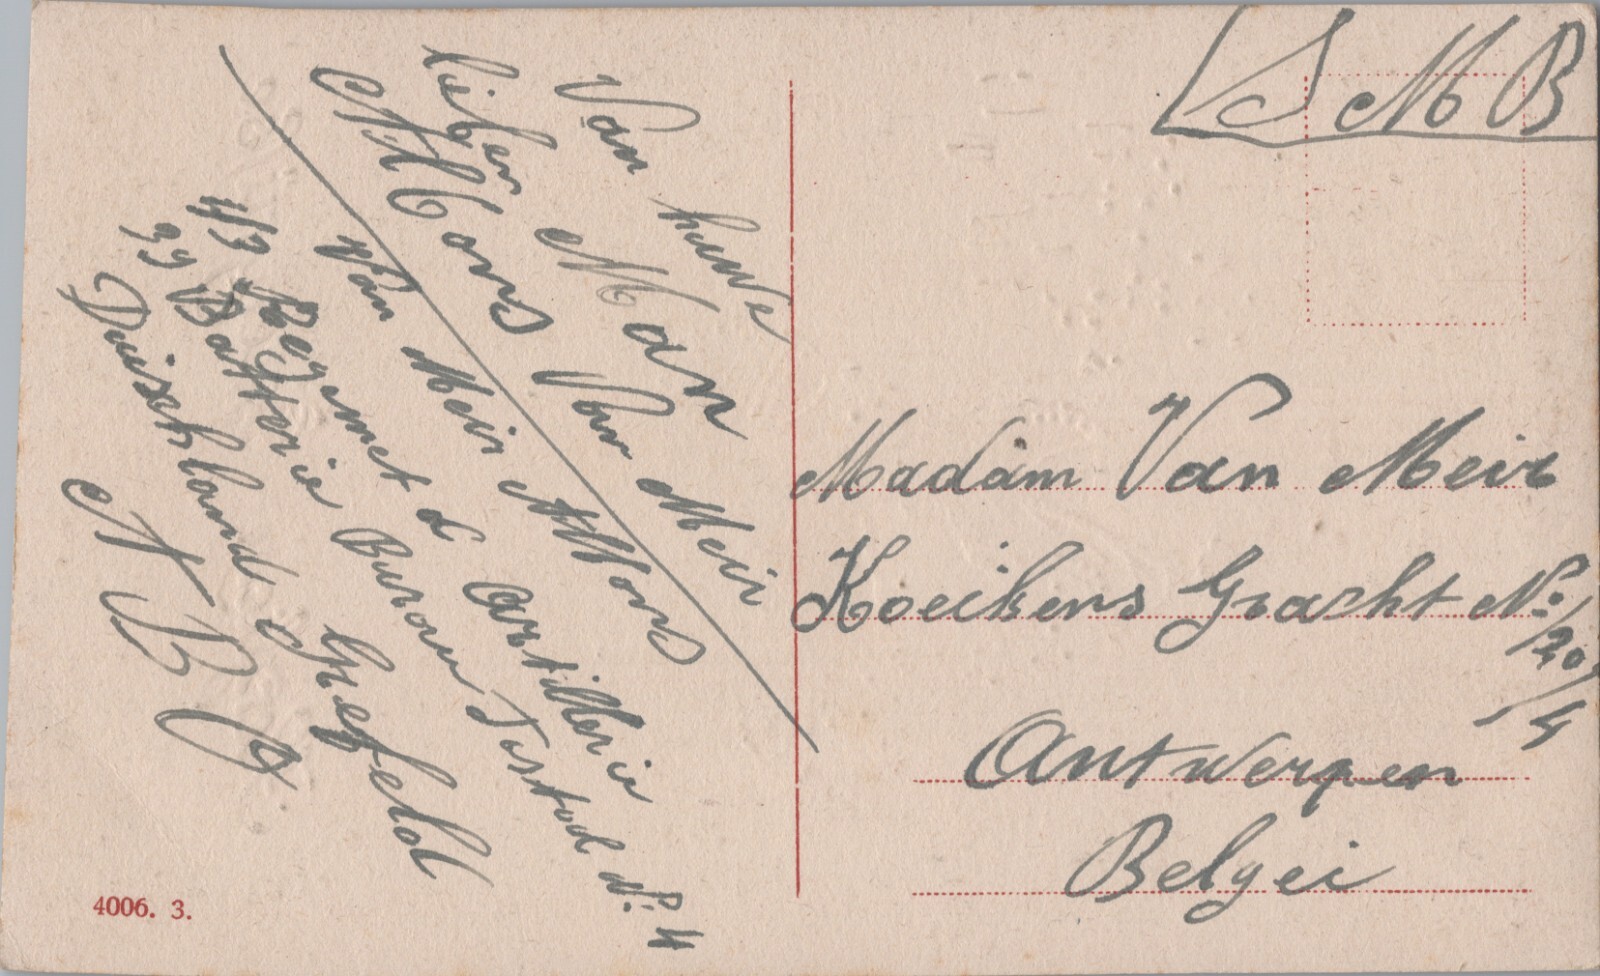 Van huwe
lieben Man
Allfons Van Meir
Van Meir Allfons
4/3 Regimet d Artillerie
39 Batterie Burau Postod Nº. 4
Duischland Grefeld
A B O
S M B
Madam Van Meir
Koeikens Gracht Nº: 20/4
Antwerpen
Belgei
4006. 3.